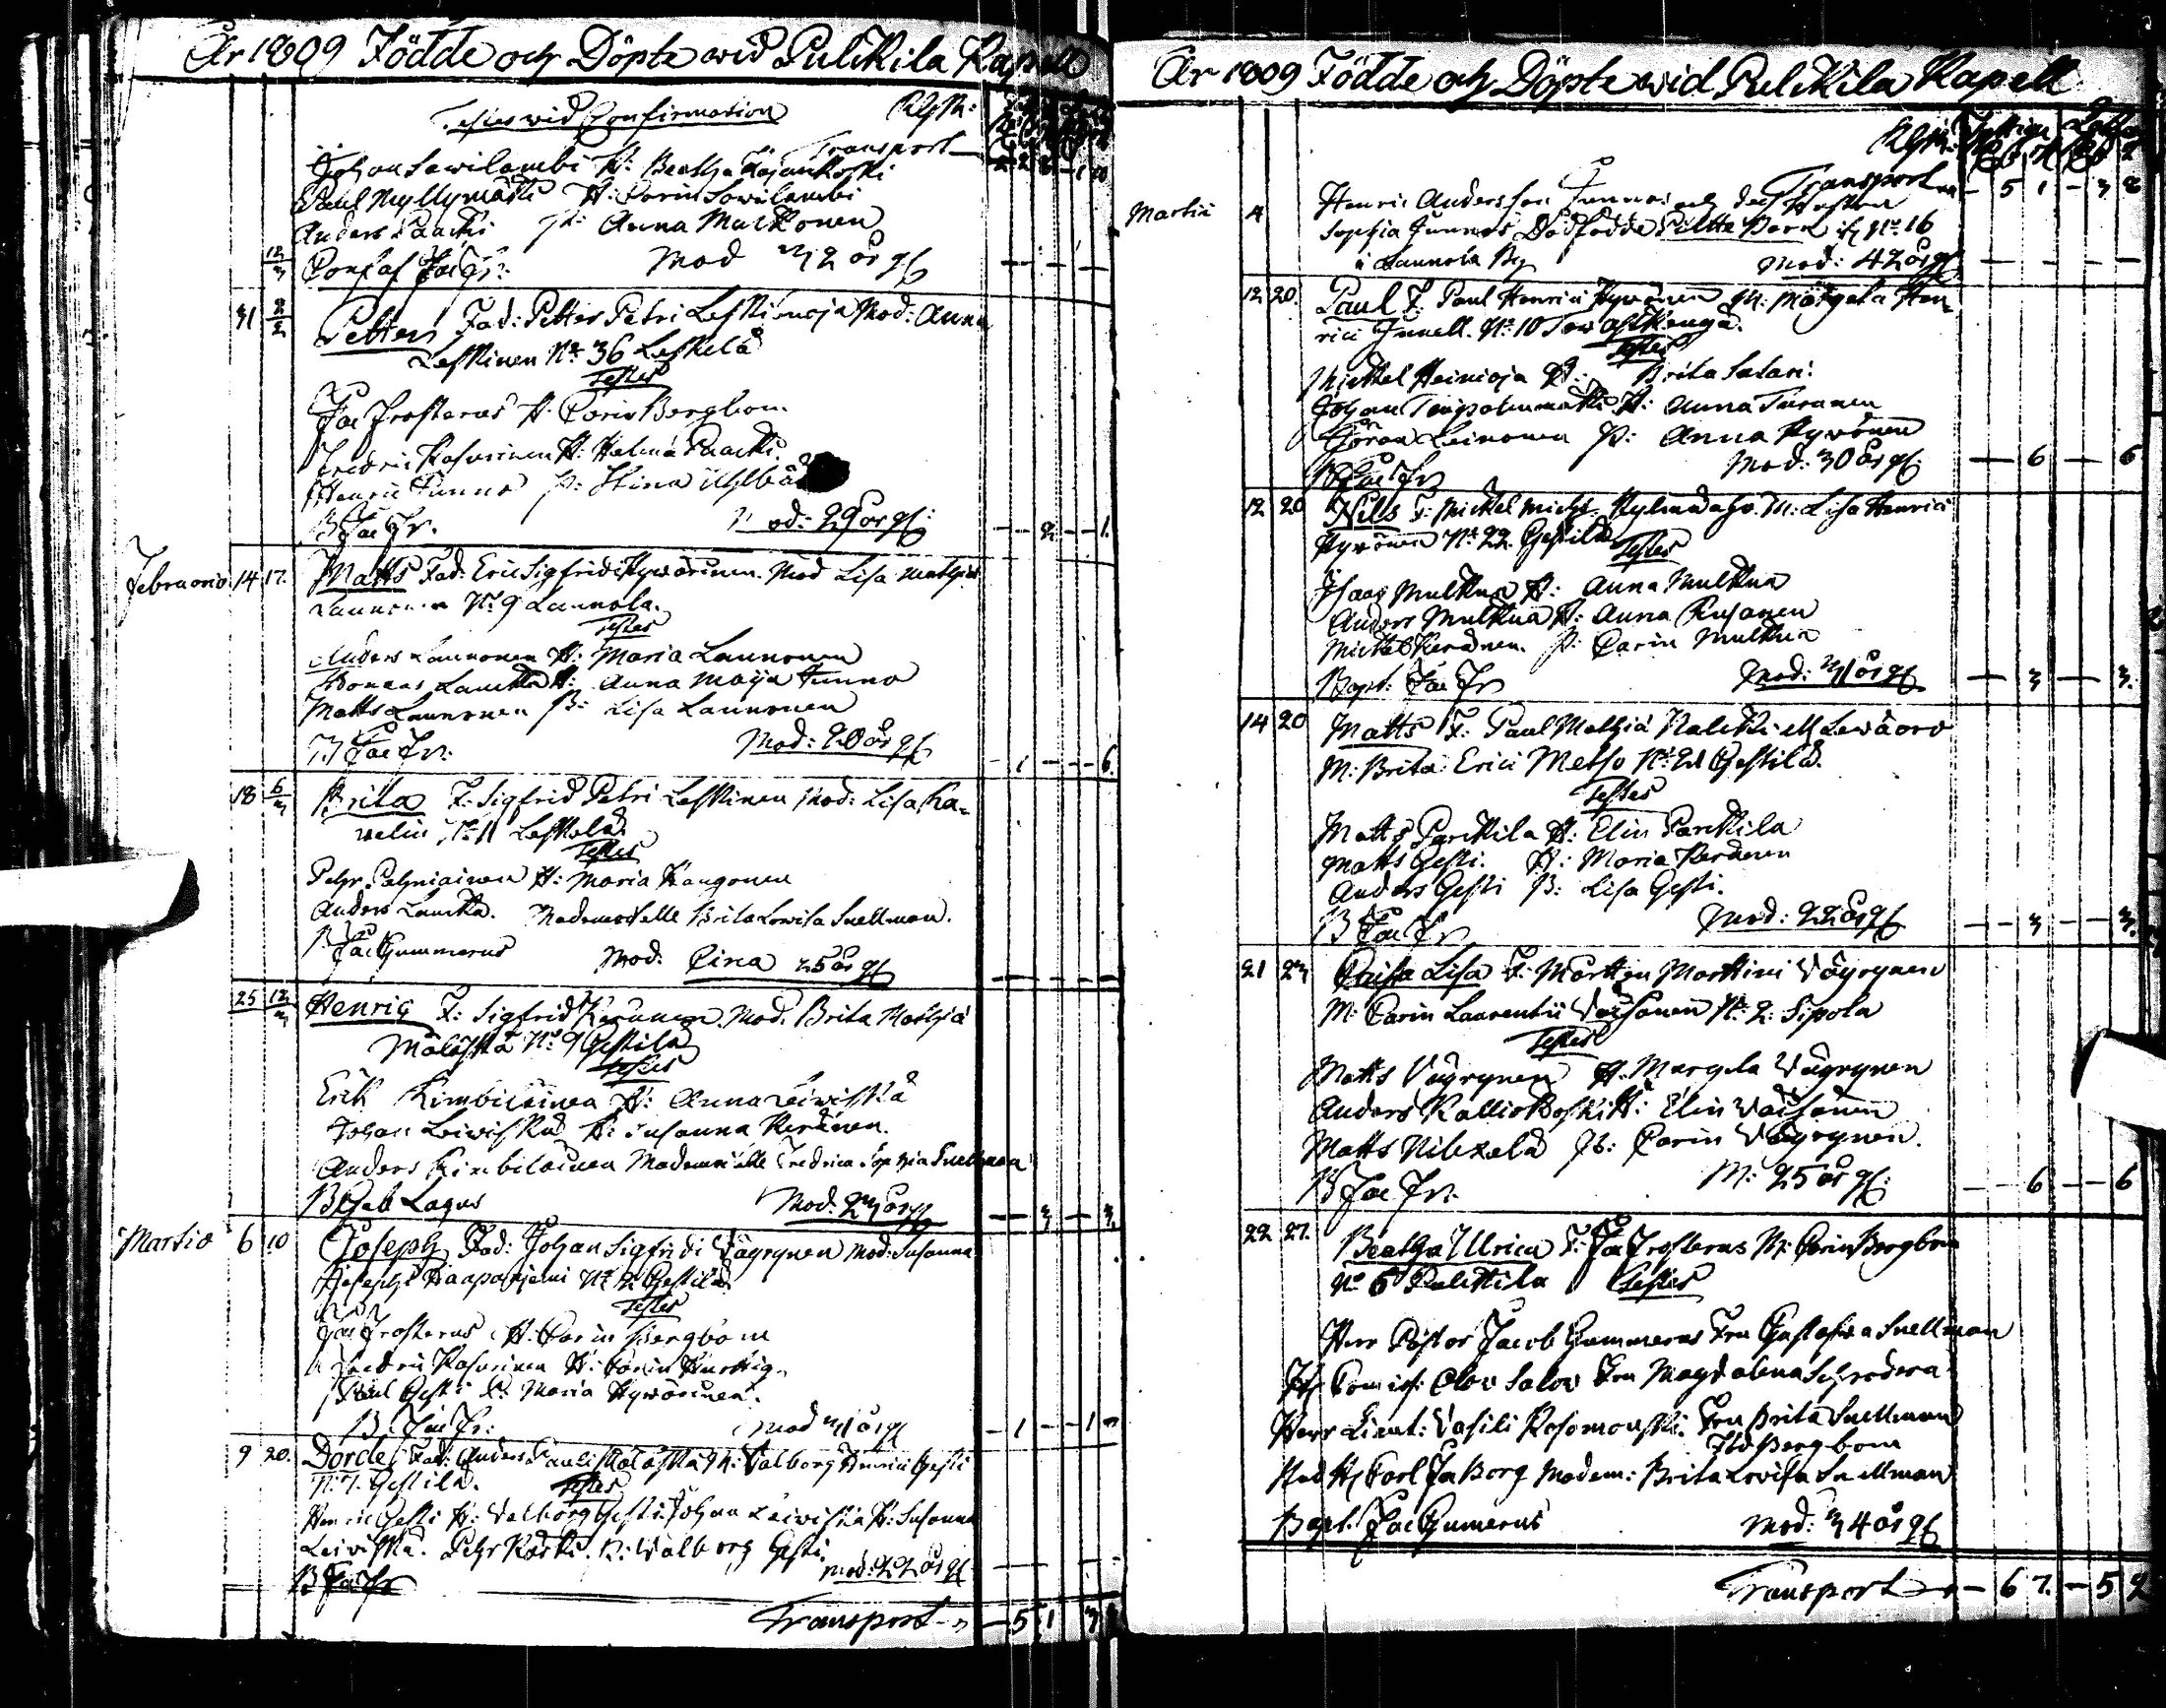 År 1809 Födde och Döpte wid Pulkkila Kapell
Testes wid Confirmation Rgsk:
Transport
Johan Sawilambi H: Beatha Kojankoski
Paul Myllymäki H: Carin Sawilambi
Anders Paacki P: Anna Mulkonen
12/3 Conf af Jac Fr: Mod 32 år gl
31 2/2 Petter Fad: Petter Petri Leskionoja Mod: Anna
Leskinen No 36 Leskelä
Testes
Jac Frosterus H: Carin Bergbom
Fredric Kasurinen H: Helena Paacki
Henric Junno P: Stina Uhlbä
B Jac Fr. Mod: 29 år gl: — 2 — — 1.
Februario 14 17. Matts Fad: Eric Sigfridi Hywärinen. Mod Lisa Mathiæ
Launonen No 9 Launola.
Testes
Anders Launonen H: Maria Launonen
Thomas Lauckka H: Anna Maija Junno
Matts Launonen P: Lisa Launonen
B Jac Fr: Mod: 20 år gl — 1 — — 6.
18 6/3 Brita F: Sigfrid Petri Leskinen Mod: Lisa Ka-
welin No 11 Leskelä
Testes
Pehr Pahniainen H: Maria Kangonen
Anders Lauckka. Mademoiselle Brita Lowisa Snellman.
B Jac Gummerus Mod. Circa 25 år gl
25 12/3 Henric F: Sigfrid Keränen. Mod. Brita Mathiæ
Mälaskä No 9 Gestilä
Testes
Erik Kimbiläinen H: Anna Leiwiskä
Johan Leiwiskä H: Susanna Keränen.
Anders Kimbiläinen Mademoiselle Fredrica Sophia Snellman
B Gab Lagus Mod. 23 år gl — 3 — 3.
Martio 6 10 Joseph Fad: Johan Sigfridi Väyrynen Mod: Susanna
Josephi Haapaniemi No 2 Gestilä
Testes
Jac Frosterus H: Carin Bergbom
Fredric Kasurinen H: Carin Hurtig
Paul Gesti P: Maria Hywärinen.
B: Jac Fr: Mod 31 år gl — 1 — — 1
9 20. Dordej Fad: Anders Pauli Mälaskä M: Valborg Henrici Gesti
No 7. Gestilä. Testes
Henric Gesti H: Valborg Gesti Johan Leiwiskä H: Susanna
Leiviskä. Pehr Koski. P: Walborg Gesti.
B Jac Fr Mod: 22 år gl
Transport — 5 1 3
År 1809 Födde och Döpte wid Pulkkila Kapell
Transport — 5 1 — 3 8
Martii 4 Henric Andersson Junnos och des Hustru
Sophia Junnos Dödfödde Piltte Barn if No 16
i Launola By Mod: 42 år gl
12 20. Paul F. Paul Henrici Hywönen M. Margeta Hen-
rici Junell. No 10 Tavastkenga.
Testes
Mickel Heinioja H: Brita Salari
Johan Tuipalanmäki H: Anna Turunen
Göran Leinonen P: Anna Hywönen
B Jac Fr Mod: 30 år gl: — 6 — 6
12 20 Nils F: Mickel Mich: Kylmäaho. M: Lisa Henrici
Hywönen No 22 Gestilä
Testes
Isaac Mulkua H: Anna Mulkua
Anders Mulkua H: Anna Rusanen
Mickel Keränen. P: Carin Mulkua
Bapt: Jac Fr Mod: 31 år gl — 3 — 3.
14 20 Matts F: Paul Mathiæ
M: Brita Erici Metso No 21 Gestilä.
Testes
Matts Parckila H: Elin Parckila
Matts Gesti. H: Maria Keränen
Anders Gesti P: Lisa Gesti.
B Jac Fr Mod: 22 år gl — 3 — 3.
21 23 Caisa Lisa F: Mårten Martini Väyrynen
M: Carin Laurentii Väisänen No 2 Sipola
Testes
Matts Väyrynen H. Margeta Väyrynen
Anders Kalliokoski H: Elin Väisänen
Matts Nikkelä P: Carin Väyrynen.
B Jac Fr: M: 25 år gl: — 6 — 6
22 27. Beatha Ulrica F: Jac Frosterus M: Carin Bergbom
No 6 Pulkkila Testes
Herr Pastor Jacob Gummerus Fru Gustafva Snellman
Hr Comiss: Olov Salov Fru Magdalena Schrodera
Herr Lieut: Vasili Kosomowski. Fru Brita Snellman
Ibid Bergbom
Stud Hr Carl Ja Borg Madem: Brita Lovisa Snellman
Bapt. Jac Gumerus Mod: 34 år gl
Transport — 6 7. — 5 2